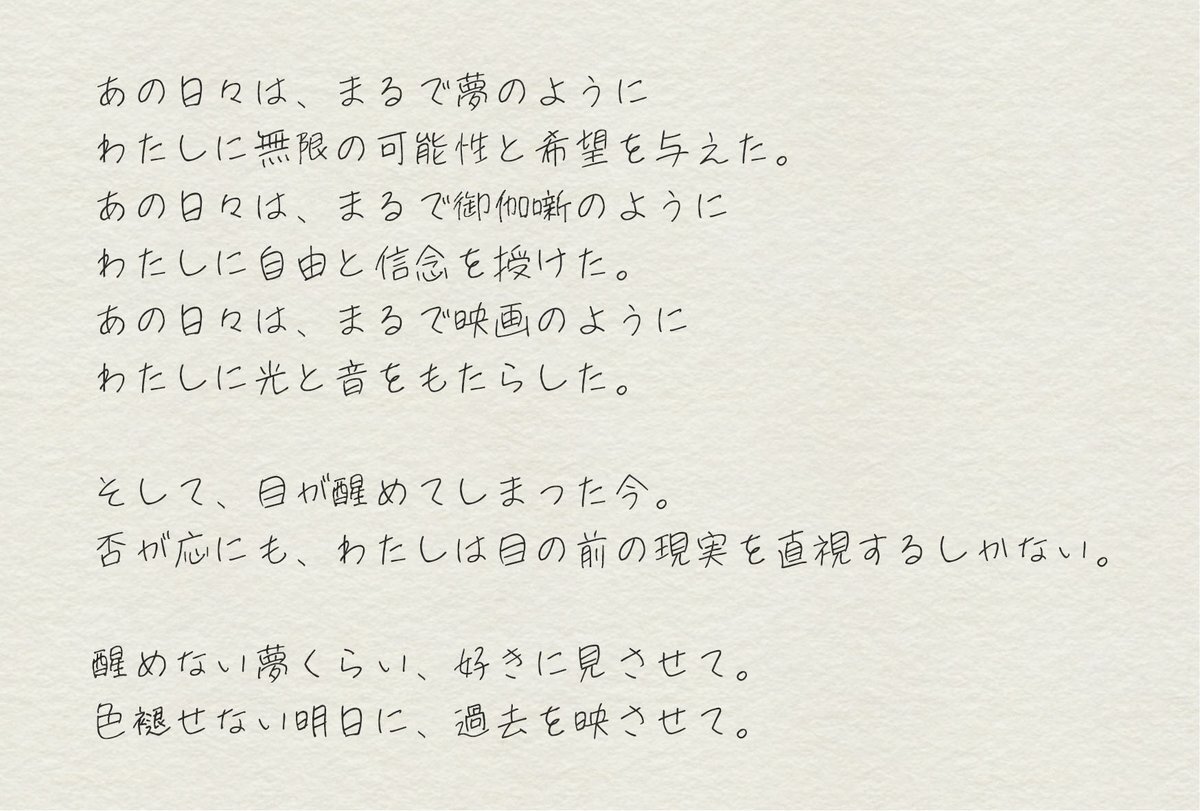 あの日々は、まるで夢のように
わたしに無限の可能性と希望を与えた。
あの日々は、まるで御伽噺のように
わたしに自由と信念を授けた。
あの日々は、まるで映画のように
わたしに光と音をもたらした。
そして、目が醒めてしまった今。
否が応にも、わたしは目の前の現実を直視するしかない。
醒めない夢くらい、好きに見させて。
色褪せない明日に、過去を映させて。